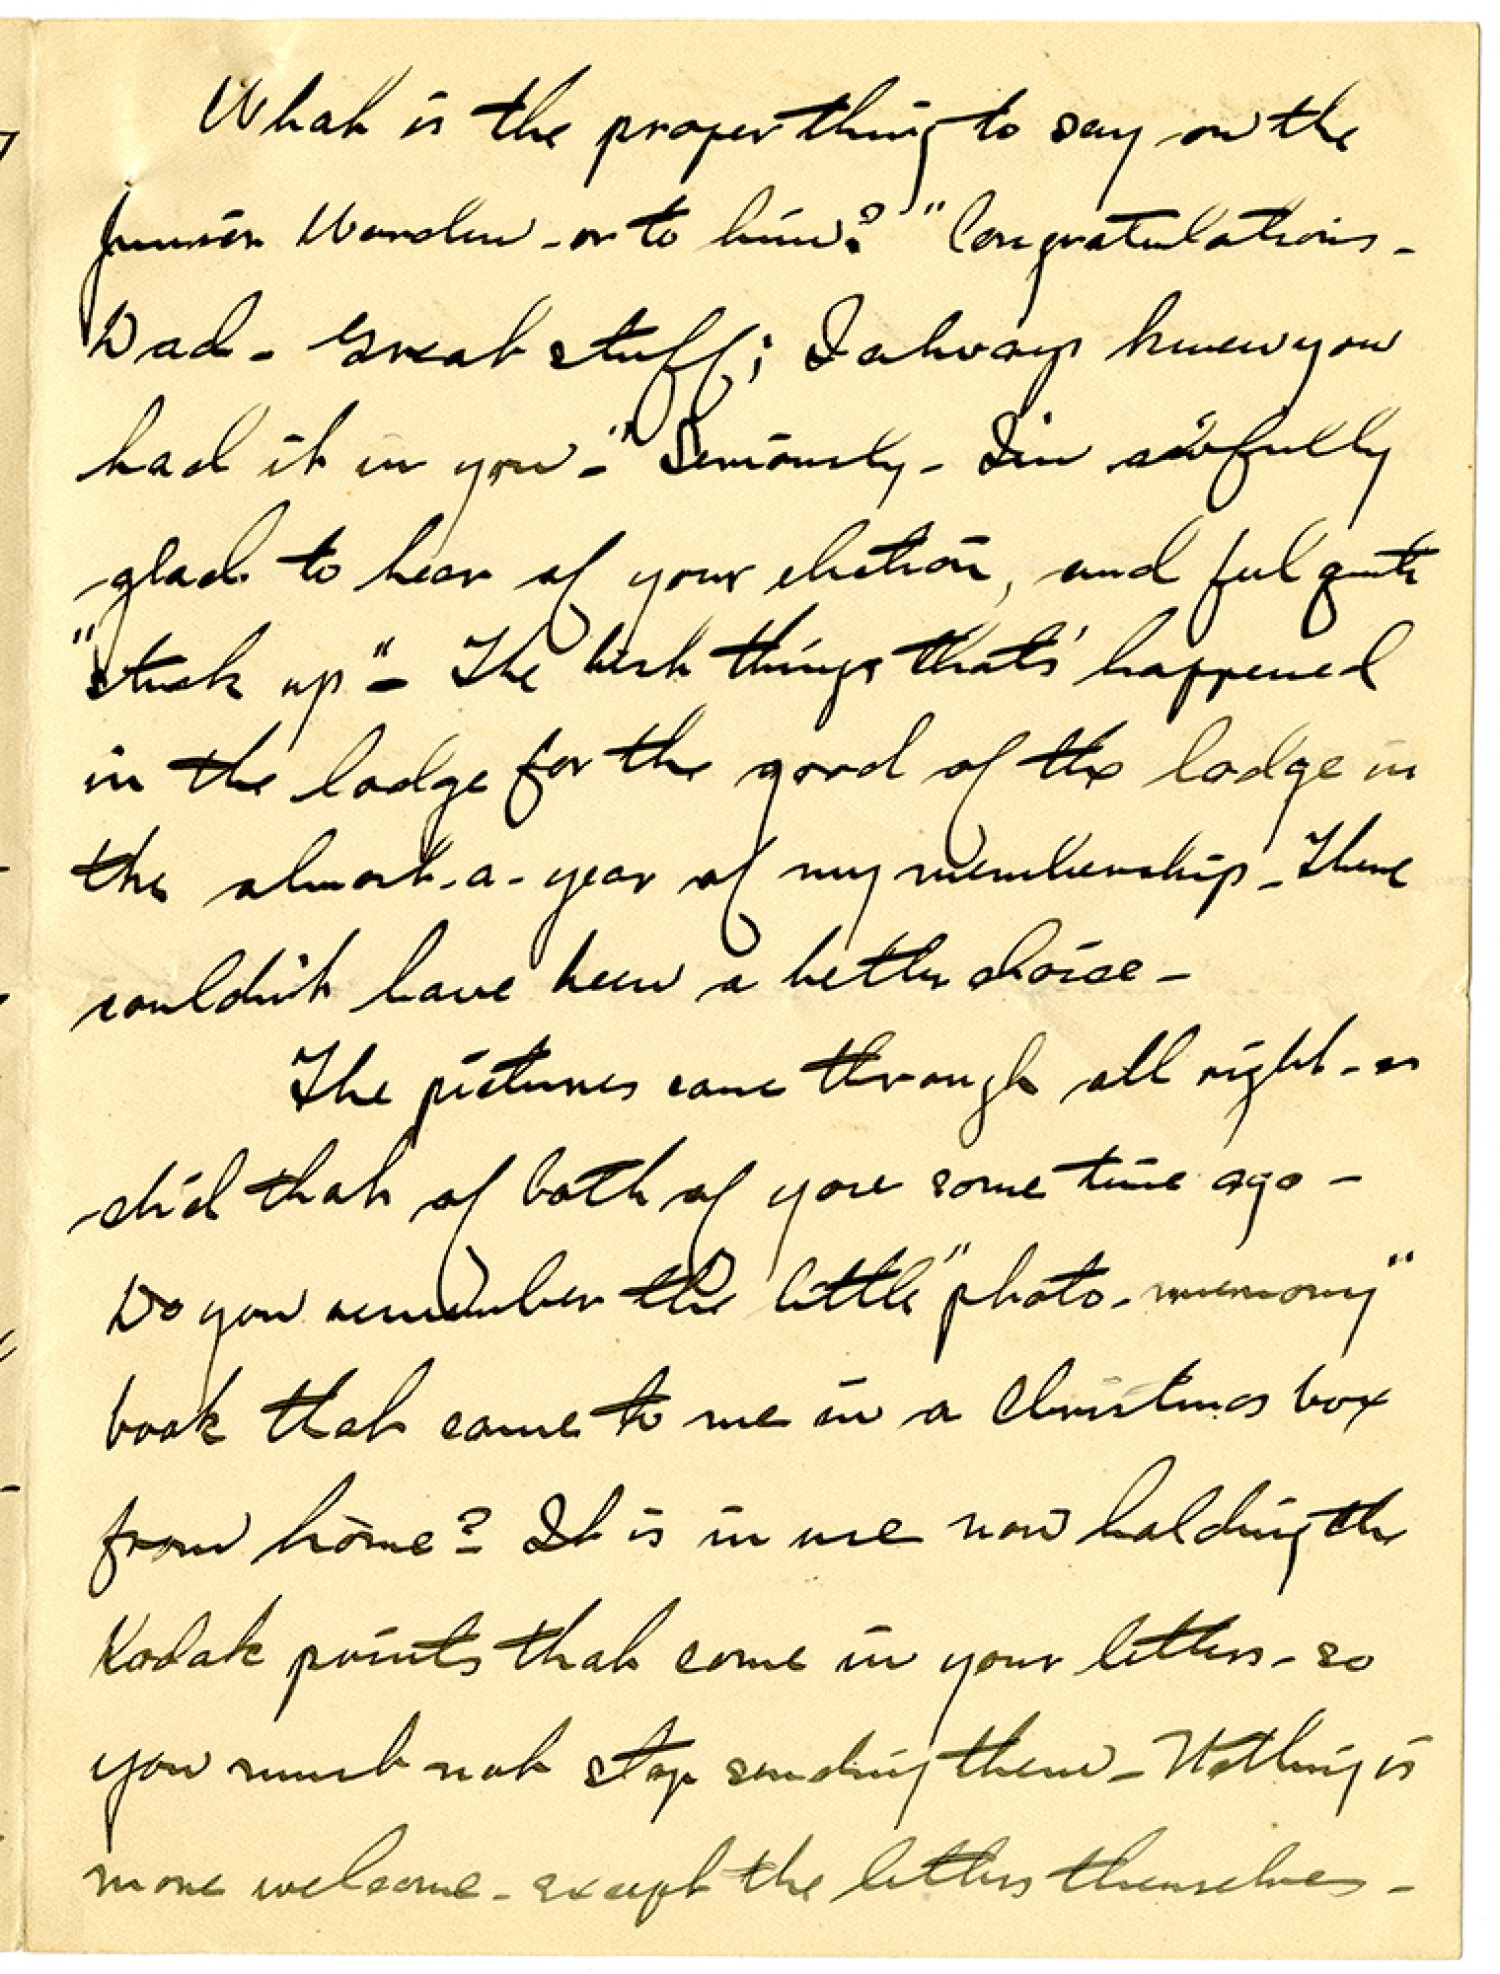 What is the proper thing to say on the
Junior Warden - or to him? "Congratulations -
Dad - Great stuff; I always knew you
had it in you - " Seriously - I'm awfully
glad to hear of your election, and feel quite
"stuck up" - The best things that's happened
in the lodge for the good of the lodge in
the almost-a-year of my membership - There
couldn't have been a better choice -
The pictures came through all right - as
did that of both of you some time ago -
Do you remember the little "photo-memory"
book that came to me in a Christmas box
from home? It is in use now holding the
Kodak prints that come in your letters - so
you must not stop sending them - Nothing is
more welcome - except the letters themselves -